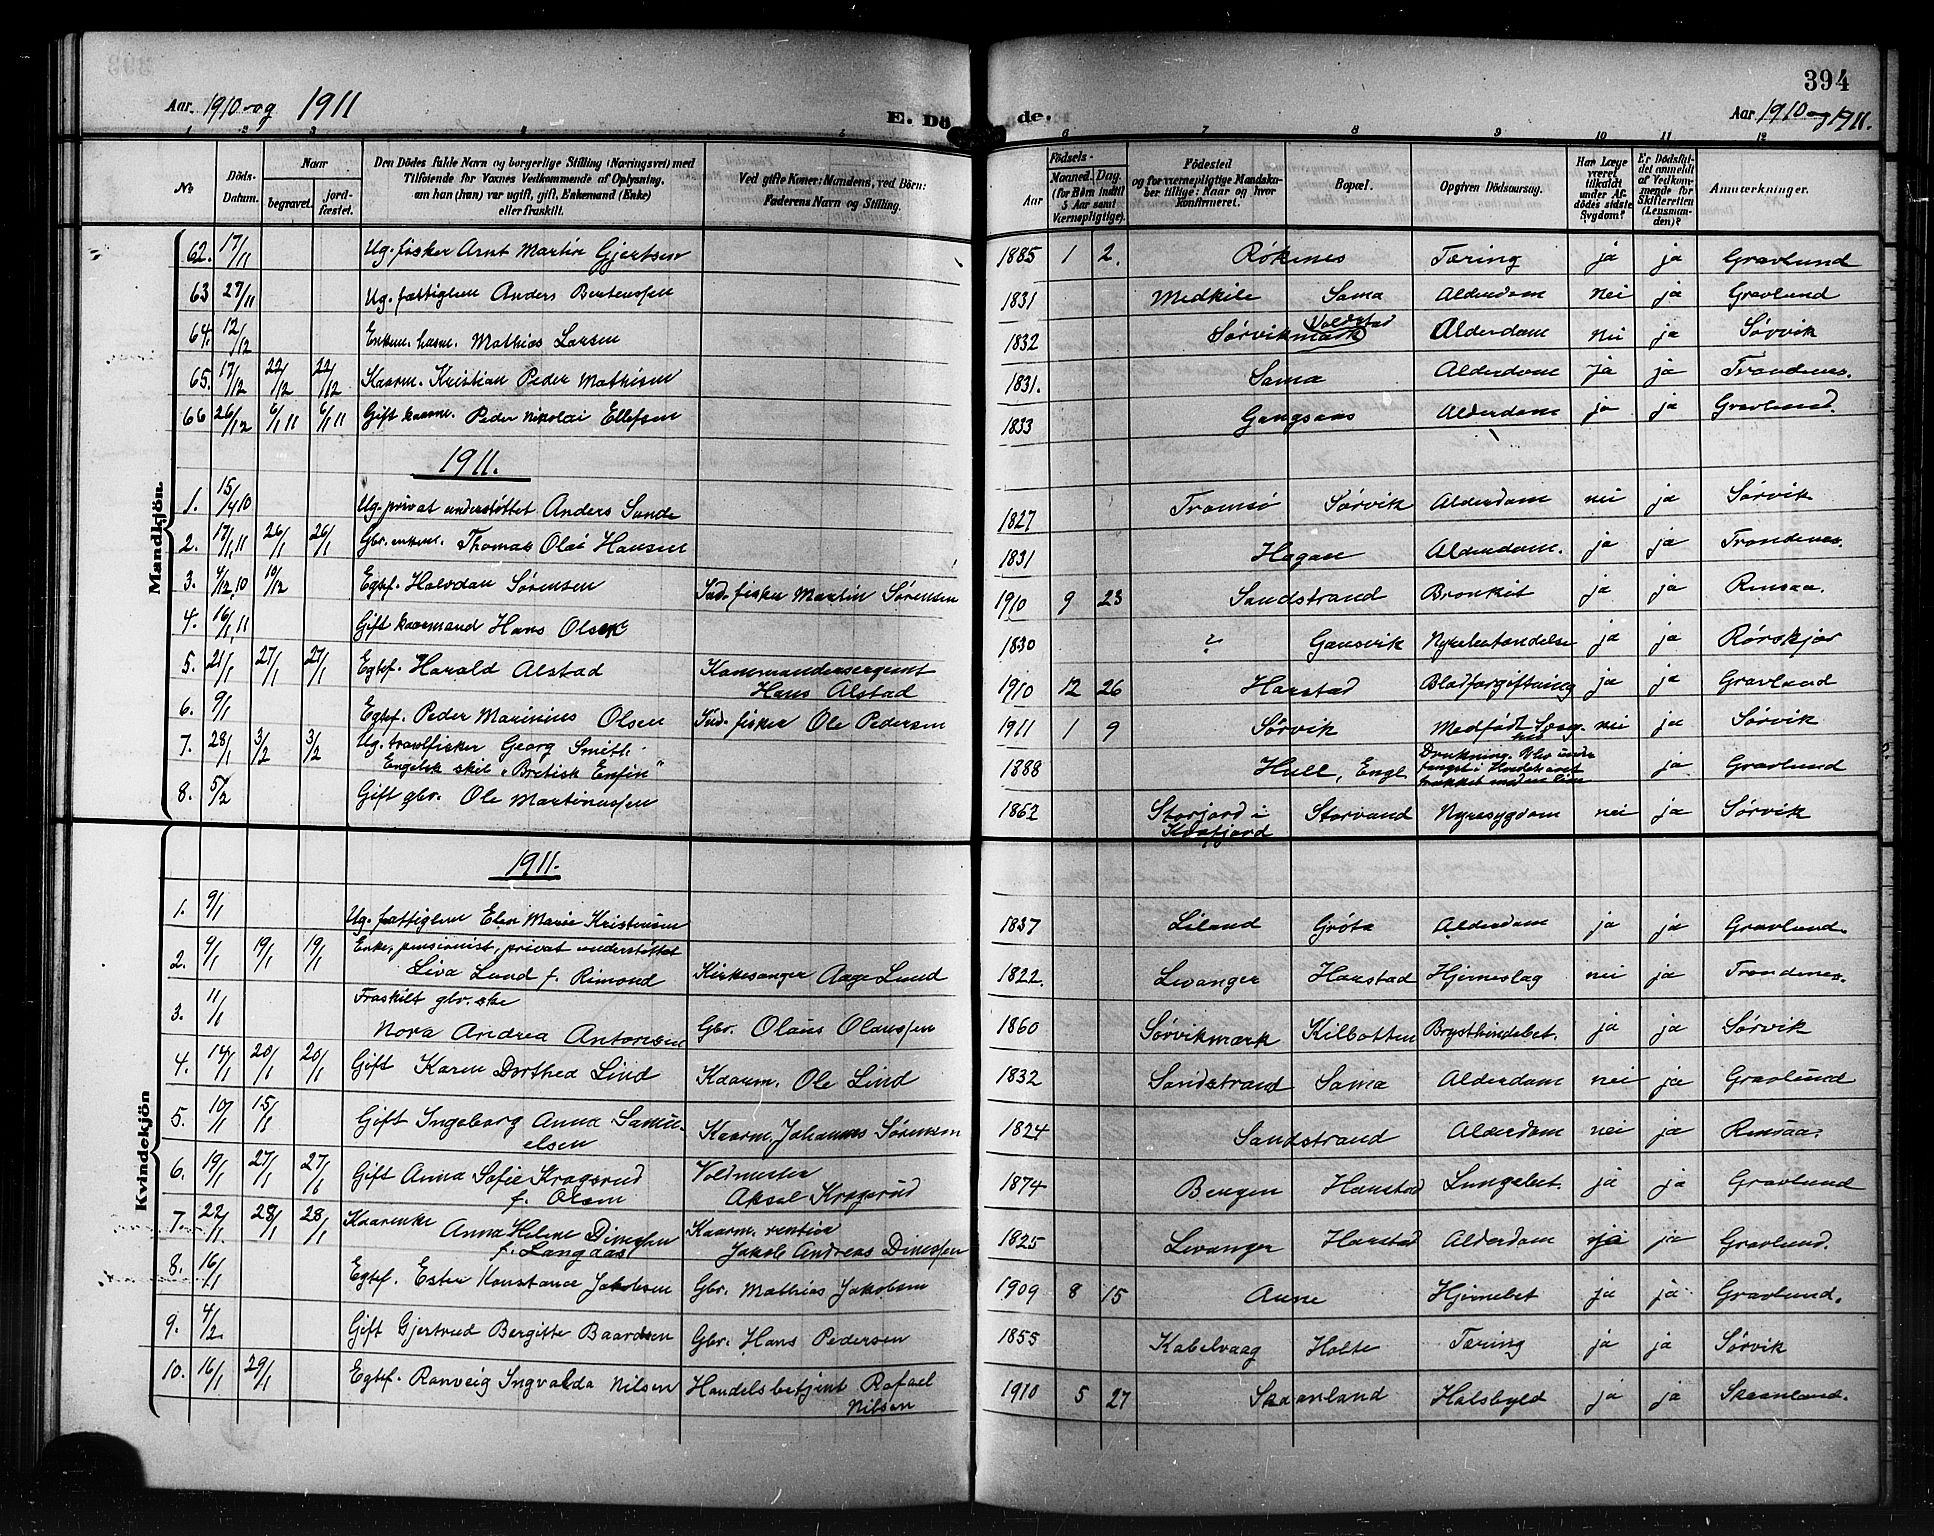 394
Aar 1910 og 1911
E. Dö de.
Aar 1910 og 1911.
1 2 3 4 5 6 7 8 9 10 11 12
No
Döds-Datum.
Naar
begravet.
jord-fæstet.
Den Dödes fulde Navn og borgerlige Stilling (Næringsvei) med
Tilföiende for Voxnes Vedkommende af Oplysning,
om han (hun) var ugift, gift, Enkemand (Enke)
eller fraskilt.
Ved gifte Koner: Mandens, ved Börn:
Faderens Navn og Stilling.
Födsels-
Aar
Maaned. Dag.
(for Börn indtil
5 Aar samt
Værnepligtige).
Födested
og for værnepligtige Mandska-
ber tillige: Naar og hvor
Konfirmeret.
Bopæl.
Opgiven Dödsaarsag.
Har Læge
været
tilkaldt
under Af-
dödes sidste
Sygdom?
Er Dödsfal-
det anmeldt
af Vedkom-
mende for
Skifteretten
(Lensman-
den)?
Anmerkninger.
Mandkjön.
62. 17/11 Ug. fisker Arnt Martin Gjertsen 1885 1 2. Røkenes Tæring ja ja Gravlund
63 27/11 Ug. fattiglem Anders Bertenssen 1831 Medkile Sama Alderdom nei ja Gravlund
64. 12/12 Enkem. husm. Mathias Larsen 1832 Sørvikmark Voldstad Alderdom nei ja Sørvik
65. 17/12 22/12 22/12 Kaarm. Kristian Peder Mathisen 1831. Sama Alderdom ja ja Trondenes.
66 26/12 6/1 11 6/1 11 Gift kaarm. Peder Nikolai Ellefsen 1833 Gangsaas Alderdom ja ja Gravlund.
1911.
1. 15/4 10 Ug. privat understøttet Anders Sande 1827 Tromsø Sørvik Alderdom nei ja Sørvik
2. 17/1 11 26/1 26/1 Gbr. enkem. Thomas Olai Hansen 1831 Hagan Alderdom. ja ja Trondenes.
3. 4/12 10 10/12 Egtef. Halvdan Sørensen Ind. fisker Martin Sørensen 1910 9 23 Sandstrand Bronkit ja ja Rensaa.
4. 16/1 11 Gift kaarmand Hans Olsen 1830 ? Gausvik Nyrebetændelse ja ja Rørskjær
5. 21/1 27/1 27/1 Egtef. Harald Alstad Kommandersergent
Hans Alstad 1910 12 26 Harstad Blodforgiftning ja ja Gravlund
6. 9/1 Egtef. Peder Marinius Olsen Ind. fisker Ole Pedersen 1911 1 9 Sørvik Medfødt Svag-
hed nei ja Sørvik
7. 28/1 3/2 3/2 Ug. trawlfisker Georg Smith.
Engelsk skib "Bretisk Enfin" 1888 Hull, Engl Drukning. Blev under
fangst i Nordishavet
trukket med en line ja Gravlund
8. 5/2 Gift gbr. Ole Martinussen 1862 Storjord i
Kvæfjord Storvand Nyresygdom nei ja Sørvik
Kvindekjön
1911.
1. 9/1 Ug. fattiglem Elen Marie Kristensen 1837 Liland Grøta Alderdom ja ja Gravlund.
2. 9/1 19/1 19/1 Enke, pensionist, privat understøttet
Liva Lund f. Rimond Kirkesanger Aage Lund 1822. Levanger Harstad Hjerneslag nei ja Trondenes.
3. 11/1 Fraskilt gbr. ske
Nora Andrea Antonsen Gbr. Olaus Olaussen 1860 Sørvikmark Kilbotten Brysthindebet. ja ja Sørvik
4. 14/1 20/1 20/1 Gift Karen Dorthea Lind Kaarm. Ole Lind 1832 Sandstrand Sama Alderdom nei ja Gravlund
5. 10/1 15/1 Gift Ingeborg Anna Samu-
elsen Kaarm. Johannes Sørensen 1824 Sandstrand Alderdom nei ja Rensaa.
6. 19/1 27/1 27/1 Gift Anna Sofie Kragsrud
f. Olsen Voldmester
Aksel Kragsrud 1874 Bergen Harstad Lungebet. ja ja Gravlund
7. 22/1 28/1 28/1 Kaarenke Anna Helene Dinessen
f. Langaas Kaarm. rentier
Jakob Andreas Dinessen 1825 Levanger Harstad Alderdom ja ja Gravlund.
8. 16/1 Egtef. Ester Konstanse Jakobsen Gbr. Mathias Jakobsen 1909 8 15 Aune Hjernebet ja ja Gravlund.
9. 4/2. Gift Gjertrud Bergitte Baardsen Gbr. Hans Pedersen 1855 Kabelvaag Holte Tæring ja ja Sørvik
10. 16/1 29/1 Egtef. Ranveig Ingvalda Nilsen Handelsbetjent Rafael
Nilsen 1910 5 27 Skaanland Halsbyld ja ja Skaanland.